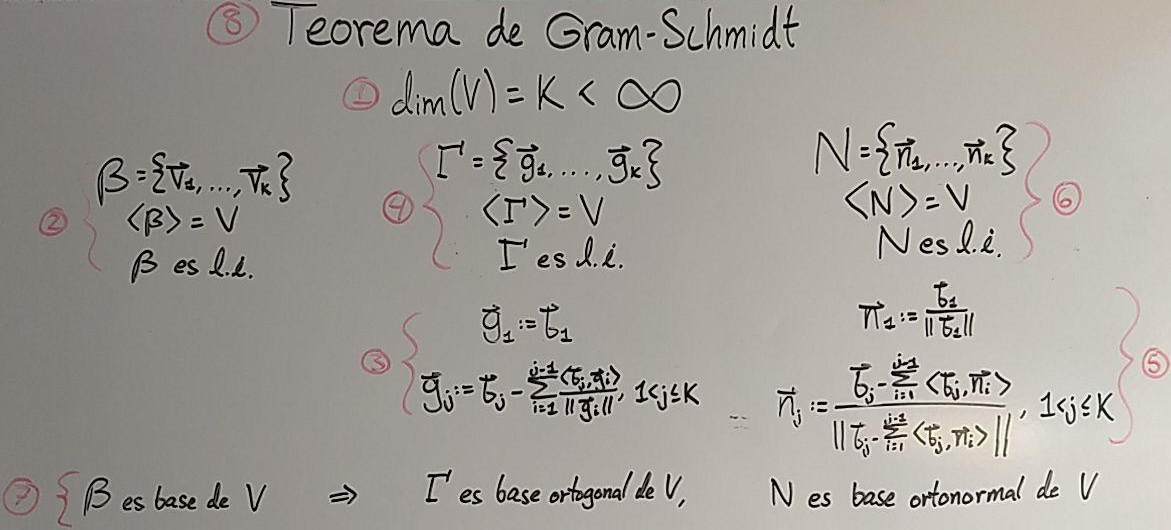 ⑧ Teorema de Gram-Schmidt
① dim(V) = K < ∞
② β = {v⃗₁, ..., v⃗ₖ}
⟨β⟩ = V
β es l.i.
④ Γ = {g⃗₁, ..., g⃗ₖ}
⟨Γ⟩ = V
Γ es l.i.
N = {n⃗₁, ..., n⃗ₖ} ⑥
⟨N⟩ = V
N es l.i.
③ g⃗₁ := b⃗₁
g⃗ⱼ := b⃗ⱼ - ∑_{i=1}^{j-1} <b⃗ⱼ, g⃗ᵢ> / ||g⃗ᵢ||, 1<j≤K
n⃗₁ := b⃗₁ / ||b⃗₁|| ⑤
n⃗ⱼ := (b⃗ⱼ - ∑_{i=1}^{j-1} <b⃗ⱼ, n⃗ᵢ>) / ||b⃗ⱼ - ∑_{i=1}^{j-1} <b⃗ⱼ, n⃗ᵢ>||, 1<j≤K
⑦ { β es base de V ⇒ Γ es base ortogonal de V, N es base ortonormal de V